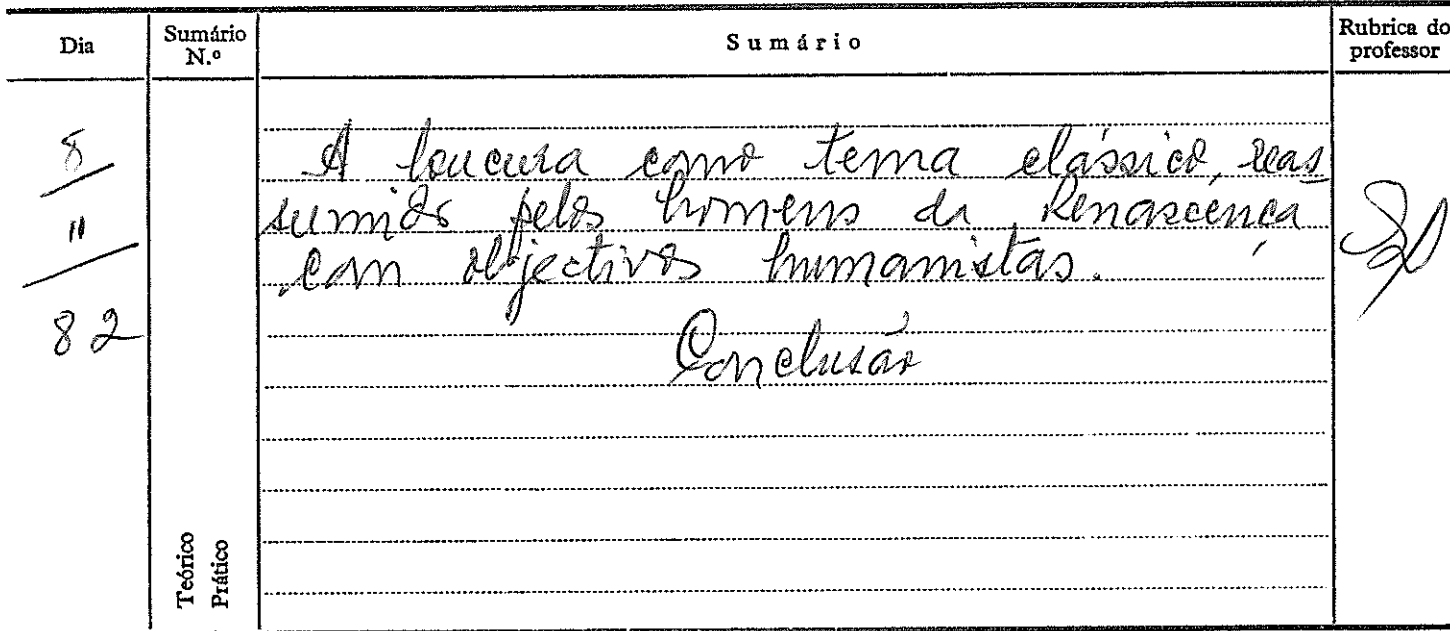 Dia
Sumário N.º
Sumário
Rubrica do professor
8
11
82
A loucura como tema clássico, reas
sumido pelos homens da Renascença
com objectivos humanistas.
Conclusão
Teórico
Prático